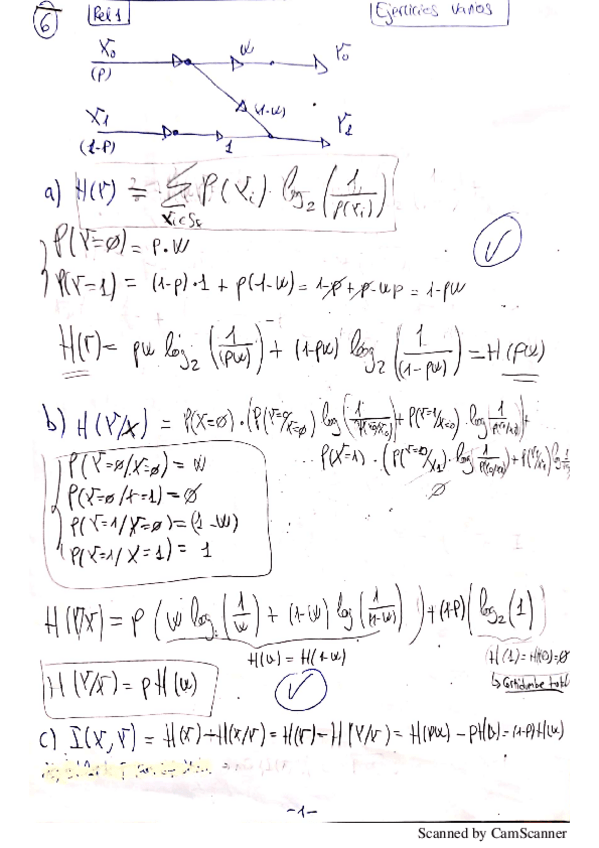 6
Rel 1
Ejercicios varios
X0
(p)
w
Y0
(1-w)
X1
(1-p)
1
Y1
a) H(Y) = Σ P(Yi) · log2 (1/p(Yi))
P(Y=ø) = p·w
P(Y=1) = (1-p)·1 + p(1-w) = 1-p+p-wp = 1-pw
H(Y) = pw log2 (1/(pw)) + (1-pw) log2 (1/(1-pw)) = H(pw)
b) H(Y/X) = P(X=ø)·(P(Y=ø/X=ø) log (1/P(Y0/X0)) + P(Y=1/X=0) · log 1/P(Y1/X0)) +
P(X=1) · (P(Y=ø/X1) · log 1/P(Y0/X1) + P(Y1/X1) log
ø
P(Y=ø/X=ø) = w
P(Y=ø/X=1) = ø
P(Y=1/X=ø) = (1-w)
P(Y=1/X=1) = 1
H(Y/X) = p (w log (1/w) + (1-w) log (1/(1-w))) + (1-p) (log2 (1))
H(w) = H(1-w)
H(1) = H(0) = ø
↳ Certidumbre total
H(Y/X) = p H(w)
c) I(X,Y) = H(X) - H(X/Y) = H(Y) - H(Y/X) = H(pw) - pH(w) = (1-p)H(w)
-1-
Scanned by CamScanner